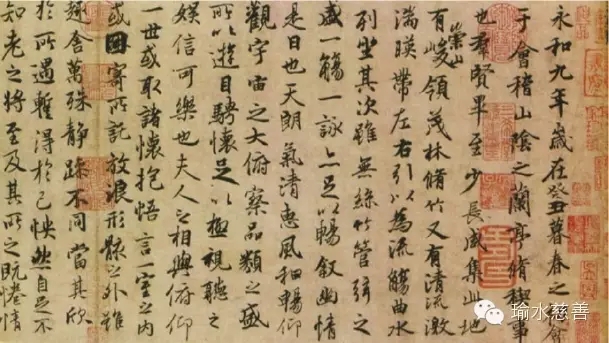 永和九年歲在癸丑暮春之初會
于會稽山陰之蘭亭脩稧事
也群賢畢至少長咸集此地
有崇山峻領茂林脩竹又有清流激
湍暎帶左右引以為流觴曲水
列坐其次雖無絲竹管弦之
盛一觴一詠亦足以暢敘幽情
是日也天朗氣清惠風和暢仰
觀宇宙之大俯察品類之盛
所以遊目騁懷足以極視聽之
娛信可樂也夫人之相與俯仰
一世或取諸懷抱悟言一室之內
或因寄所託放浪形骸之外雖
趣舍萬殊靜躁不同當其欣
於所遇暫得於己怏然自足不
知老之將至及其所之既惓情
瑜水慈善